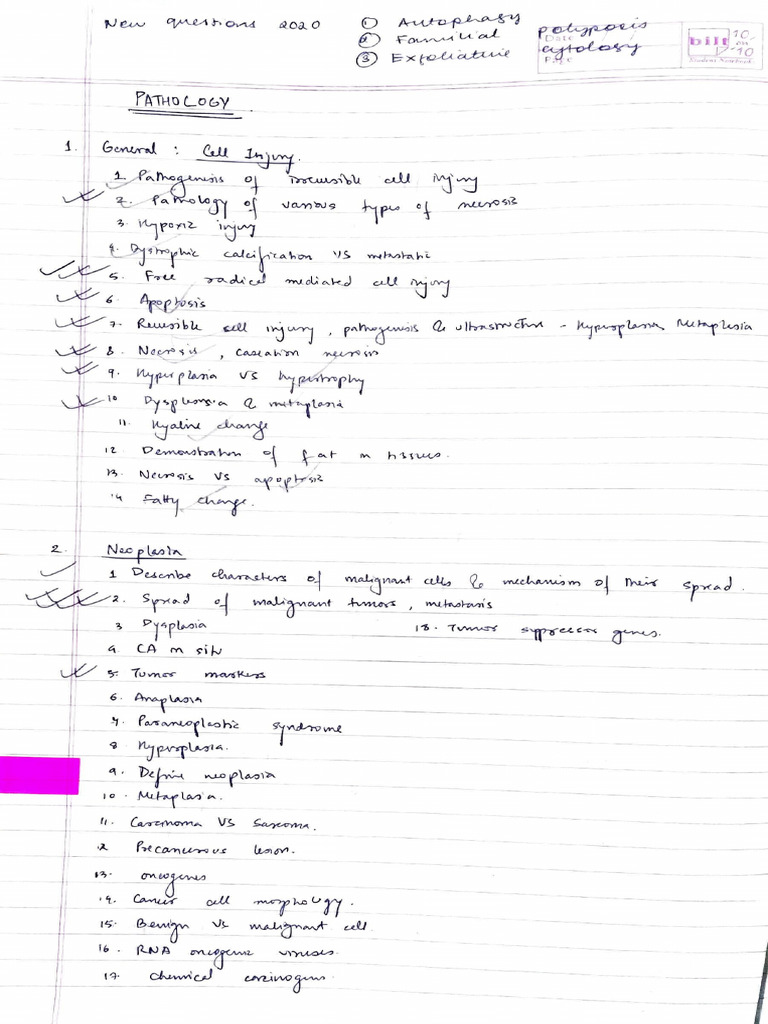 New questions 2020
① Autophagy
② Familial polyposis
③ Exfoliative cytology
bilt
Date
Page
Student Notebook
10 on 10
PATHOLOGY
1. General : Cell Injury.
1. Pathogenesis of irreversible cell injury
2. Pathology of various types of necrosis
3. Hypoxic injury
4. Dystrophic calcification VS metastatic
5. Free radical mediated cell injury
6. Apoptosis
7. Reversible cell injury, pathogenesis & ultrastructure - Hyperplasia, Metaplasia
8. Necrosis, caseation necrosis
9. Hyperplasia VS hypertrophy
10 Dysplasia & metaplasia
11. Hyaline change
12 Demonstration of fat in tissues.
13. Necrosis VS apoptosis
14 Fatty change.
2. Neoplasia
1 Describe characters of malignant cells & mechanism of their spread.
2. Spread of malignant tumors, metastasis
3 Dysplasia 18. Tumor suppressor genes.
4. CA in situ
5. Tumor markers
6. Anaplasia
7. Paraneoplastic syndrome
8 Hyperplasia.
9. Define neoplasia
10. Metaplasia.
11. Carcinoma VS Sarcoma.
12 Precancerous lesion.
13. oncogenes
14. Cancer cell morphology.
15. Benign VS malignant cell.
16. RNA oncogenic viruses.
17. Chemical carcinogens.